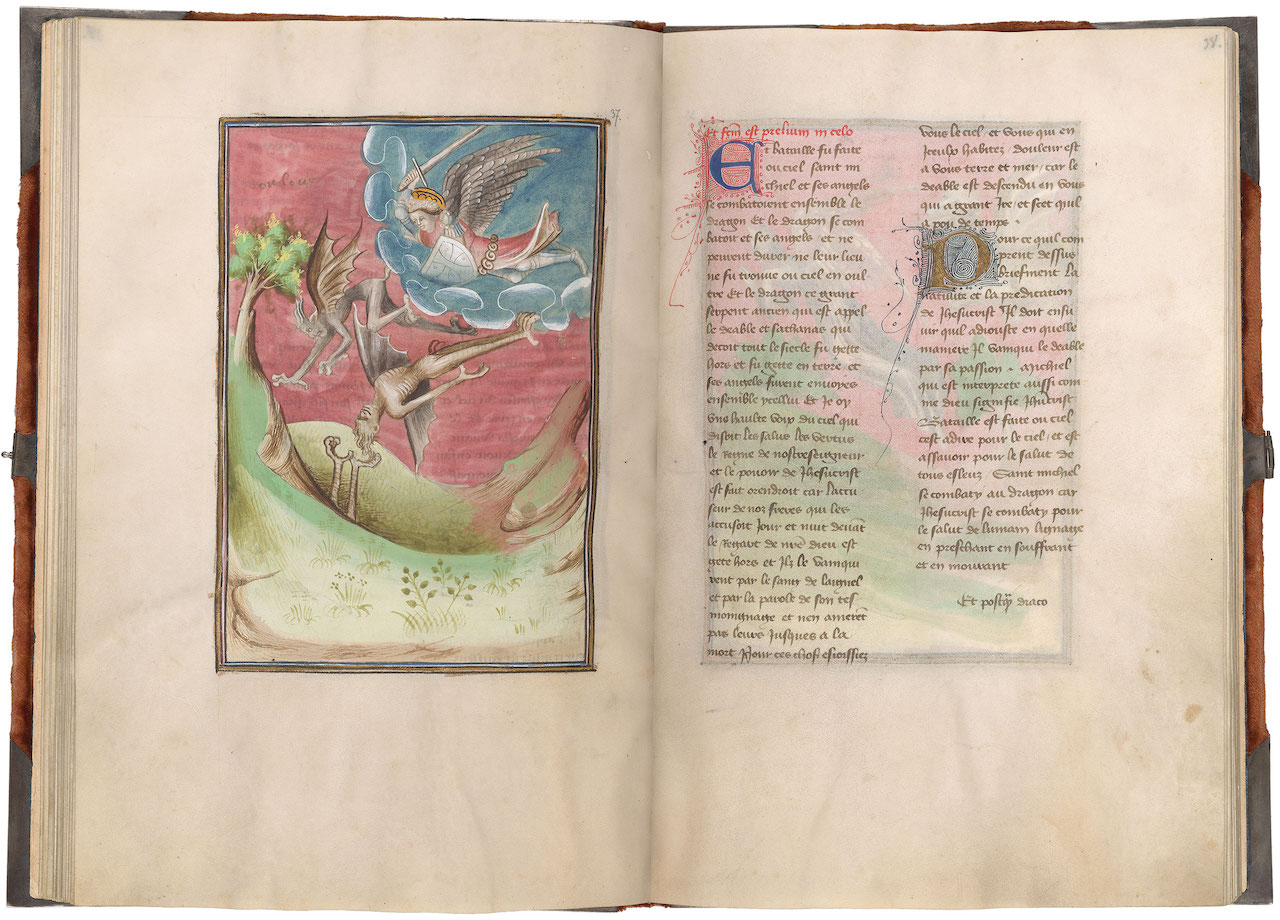 37.
38.
Et fcm est prelium in celo
Et bataille fu faite
ou ciel saint mi
chiel et ses angels
se combatoient ensemble le
dragon Et le dragon se com
batoit et ses angels et ne
peurent durer ne leur lieu
ne fu trouue ou ciel en oul
tre Et le dragon ce grant
serpent ancien qui est appel
le deable et sathanas qui
decoit tout le siecle fu gette
hors et fu gette en terre et
ses angels furent enuoyes
ensemble ycellui Et Je oy
vne haulte voix du ciel qui
disoit les salus les vertus
le Regne de nostreseigneur
et le pouoir de Jhesucrist
est fait orendroit car laccu
seur de noz freres qui les
accusoit Jour et nuit deuāt
le Regart de nr̄e dieu est
gete hors et Ilz le vainqui
rent par le sang de laignel
et par la parole de son tes
moingnage et nen amerēt
pas leurs Jusques a la
mort Pour ces choses esioissiez
vous le ciel et vous qui en
Iceulx habitez / douleur est
a vous terre et mer / car le
deable est descendu en vous
qui a grant Ire / et scet quil
a pou de temps .
Pour ce quil com
prent dessus
briefment la
natiuite et la predication
de Jhesucrist Il doit ensu
uir quil adiouste en quelle
maniere Il vainqui le deable
par sa passion . Michiel
qui est interprete aussi com
me dieu signifie Jhūcrist
Bataille est faite ou ciel
cest adire pour le ciel / et est
assauoir pour le salut de
tous esleuz Saint michiel
se combaty au dragon car
Jhesucrist se combaty pour
le salut de lumain lignage
en preschant en souffrant
et en mourant
Et postq̄ draco